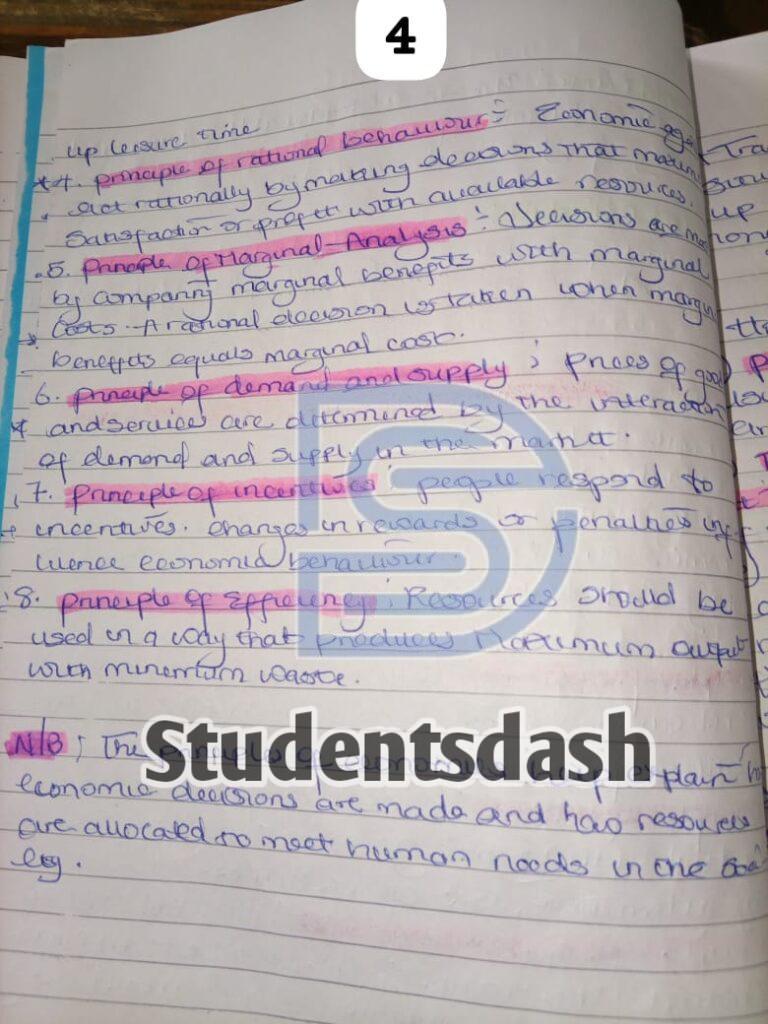 4
up leisure time
4. principle of rational behaviour: Economic
act rationally by making decisions that
satisfaction or profit with available resources.
5. Principle of Marginal-Analysis: Decisions are
by comparing marginal benefits with marginal
Costs. A rational decision is taken when
benefits equals marginal cost.
6. principle of demand and supply; prices of
and services are determined by the interaction
of demand and supply in the market.
7. Principle of incentives: people respond to
incentives. changes in rewards or penalties inf
luence economic behaviour.
8. principle of Efficiency; Resources should be
used in a way that produces maximum output
with minimum waste.
N/B; The principles of explain
economic decisions are made and how resources
are allocated to meet human needs in the
ety.
Studentsdash